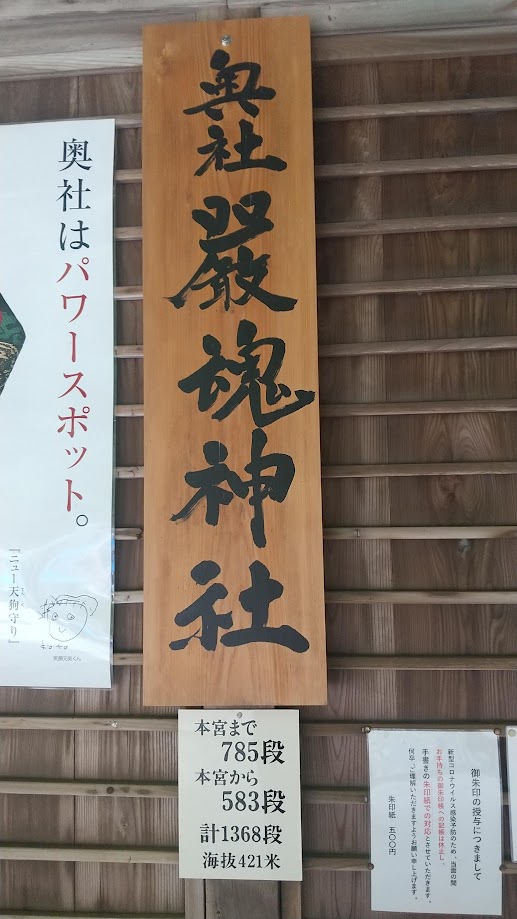 奥社
厳魂神社
奥社はパワースポット。
『ニュー天狗守り』
笑顔元気くん
本宮まで
785段
本宮から
583段
計1368段
海抜421米
御朱印の授与につきまして
新型コロナウイルス感染予防のため、当面の間
お手持ちの御朱印帳への記帳は休止し、
手書きの朱印紙での対応とさせていただきます。
何卒、ご理解いただきますようお願い申し上げます。
朱印紙 五〇〇円